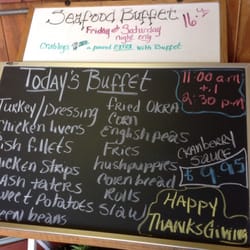 Seafood Buffet 16
Friday & Saturday
night only
a pound extra with Buffet
Today's Buffet
Turkey/Dressing
Chicken livers
Fish fillets
Chicken Strips
Sweet Potatoes
Green beans
Fried Okra
Corn
English peas
Fries
hushpuppies
Cornbread
Rolls
Slaw
11:00 am
2:30 pm
Cranberry
Sauce
$9.95
Happy
Thanksgiving